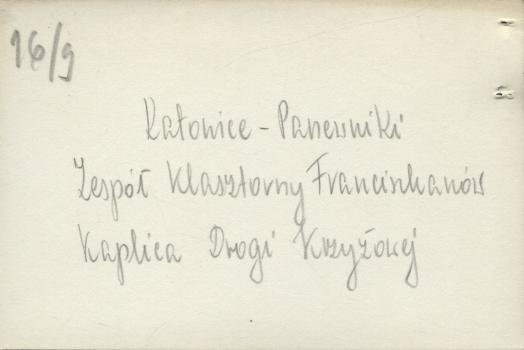 16/9
Katowice - Panewniki
Zespół Klasztorny Franciszkanów
Kaplica Drogi Krzyżowej